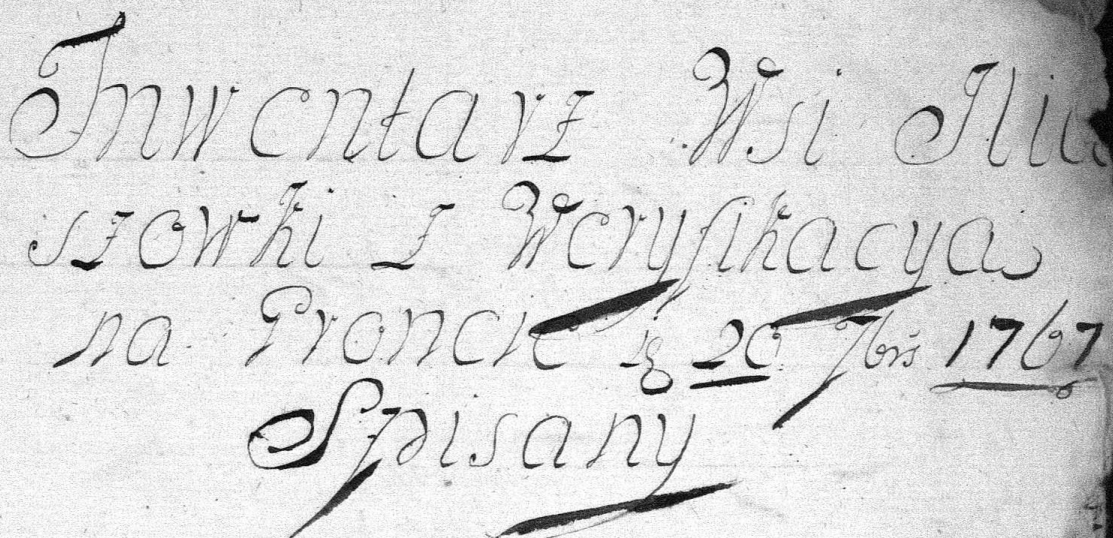 Inwentarz Wsi Ilia
szowki z Weryfikacya
na Proncie 20 7bris 1767
Spisany